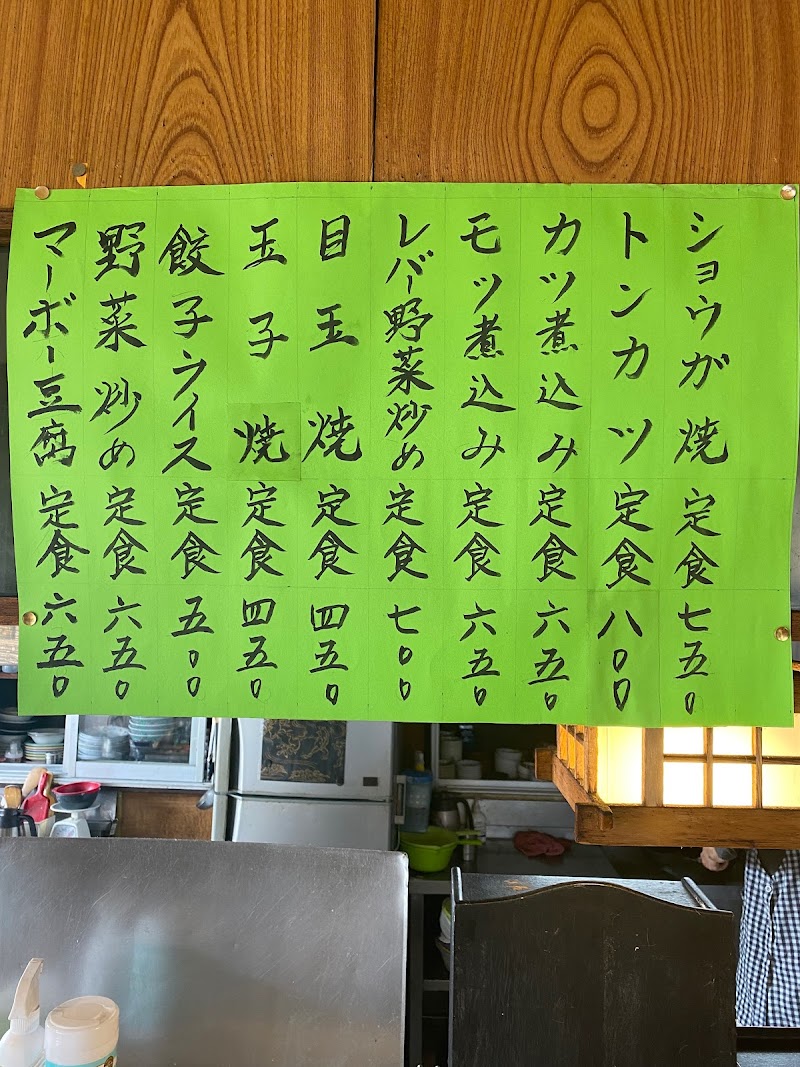 ショウガ焼定食七五〇
トンカツ定食八〇〇
カツ煮込み定食六五〇
モツ煮込み定食六五〇
レバー野菜炒め定食七〇〇
目玉焼定食四五〇
玉子焼定食四五〇
餃子ライス定食五〇〇
野菜炒め定食六五〇
マーボー豆腐定食六五〇